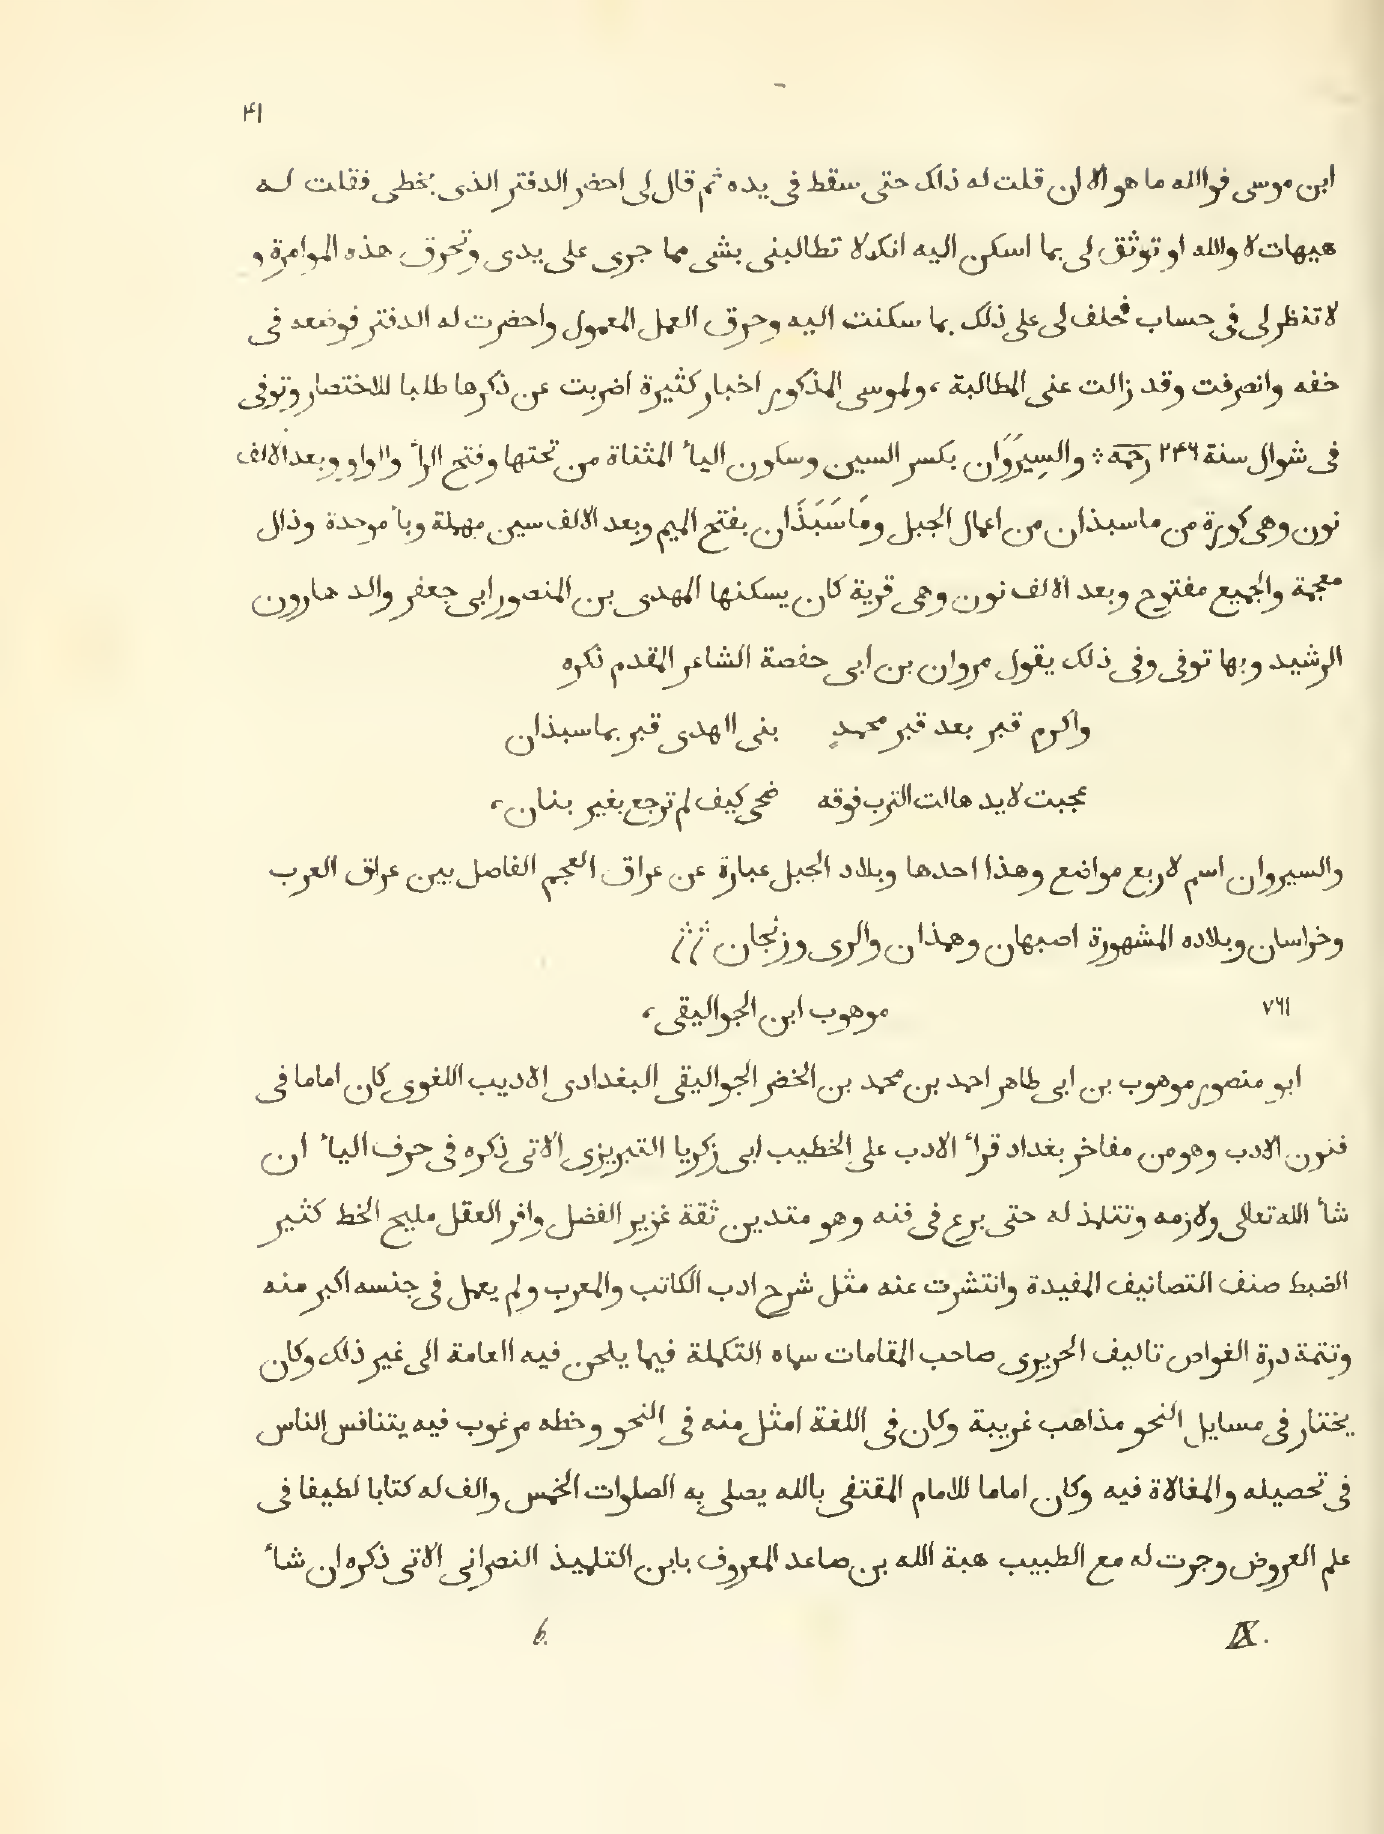 ۴۱
ابن موسى فوالله ما هو الا ان قلت له ذلك حتى سقط فى يده ثم قال لى احضر الدفتر الذى بخطى فقلت له
هيهات لا والله او توثق لى بما اسكن اليه انك لا تطالبنى بشى مما جرى على يدى وتحرق هذه الموامرة و
لا تنظر لى فى حساب فحلف لى على ذلك بما سكنت اليه وحرق العمل المعمول واحضرت له الدفتر فوضعه فى
خفه وانصرفت وقد زالت عنى المطالبة، ولموسى المذكور اخبار كثيرة اضربت عن ذكرها طلبا للاختصار وتوفى
فى شوال سنة ۲۴۶ رحمه والسِيرَوَان بكسر السين وسكون اليأ المثناة من تحتها وفتح الرأ والواو وبعد الالف
نون وهى كورة من ماسبذان من اعمال الجبل ومَاسَبَذَان بفتح الميم وبعد الالف سين مهملة وبأ موحدة وذال
معجمة والجميع مفتوح وبعد الالف نون وهى قرية كان يسكنها المهدى بن المنصور ابى جعفر والد هارون
الرشيد وبها توفى وفى ذلك يقول مروان بن ابى حفصة الشاعر المقدم ذكره
واكرم قبر بعد قبر محمدٍ بنى الهدى قبر بماسبذان
عجبت لايد هالت الترب فوقه ضحى كيف لم ترجع بغير بنان،
والسيروان اسم لاربع مواضع وهذا احدها وبلاد الجبل عبارة عن عراق العجم الفاصل بين عراق العرب
وخراسان وبلاده المشهورة اصبهان وهمذان والرى وزنجان
۷۶۱ موهوب ابن الجواليقى،
ابو منصور موهوب بن ابى طاهر احمد بن محمد بن الخضر الجواليقى البغدادى الاديب اللغوى كان اماما فى
فنون الادب وهو من مفاخر بغداد قرأ الادب على الخطيب ابى زكريا التبريزى الاتى ذكره فى حرف اليأ ان
شأ الله تعالى ولازمه وتتلمذ له حتى برع فى فنه وهو متدين ثقة غزير الفضل وافر العقل مليح الخط كثير
الضبط صنف التصانيف المفيدة وانتشرت عنه مثل شرح ادب الكاتب والمعرب ولم يعمل فى جنسه اكبر منه
وتتمة درة الغواص تاليف الحريرى صاحب المقامات سماه التكملة فيما يلحن فيه العامة الى غير ذلك وكان
يختار فى مسايل النحو مذاهب غريبة وكان فى اللغة امثل منه فى النحو وخطه مرغوب فيه يتنافس الناس
فى تحصيله والمغالاة فيه وكان اماما للامام المقتفى بالله يصلى به الصلوات الخمس والف له كتابا لطيفا فى
علم العروض وجرت له مع الطبيب هبة الله بن صاعد المعروف بابن التلميذ النصرانى الاتى ذكره ان شأ
6.